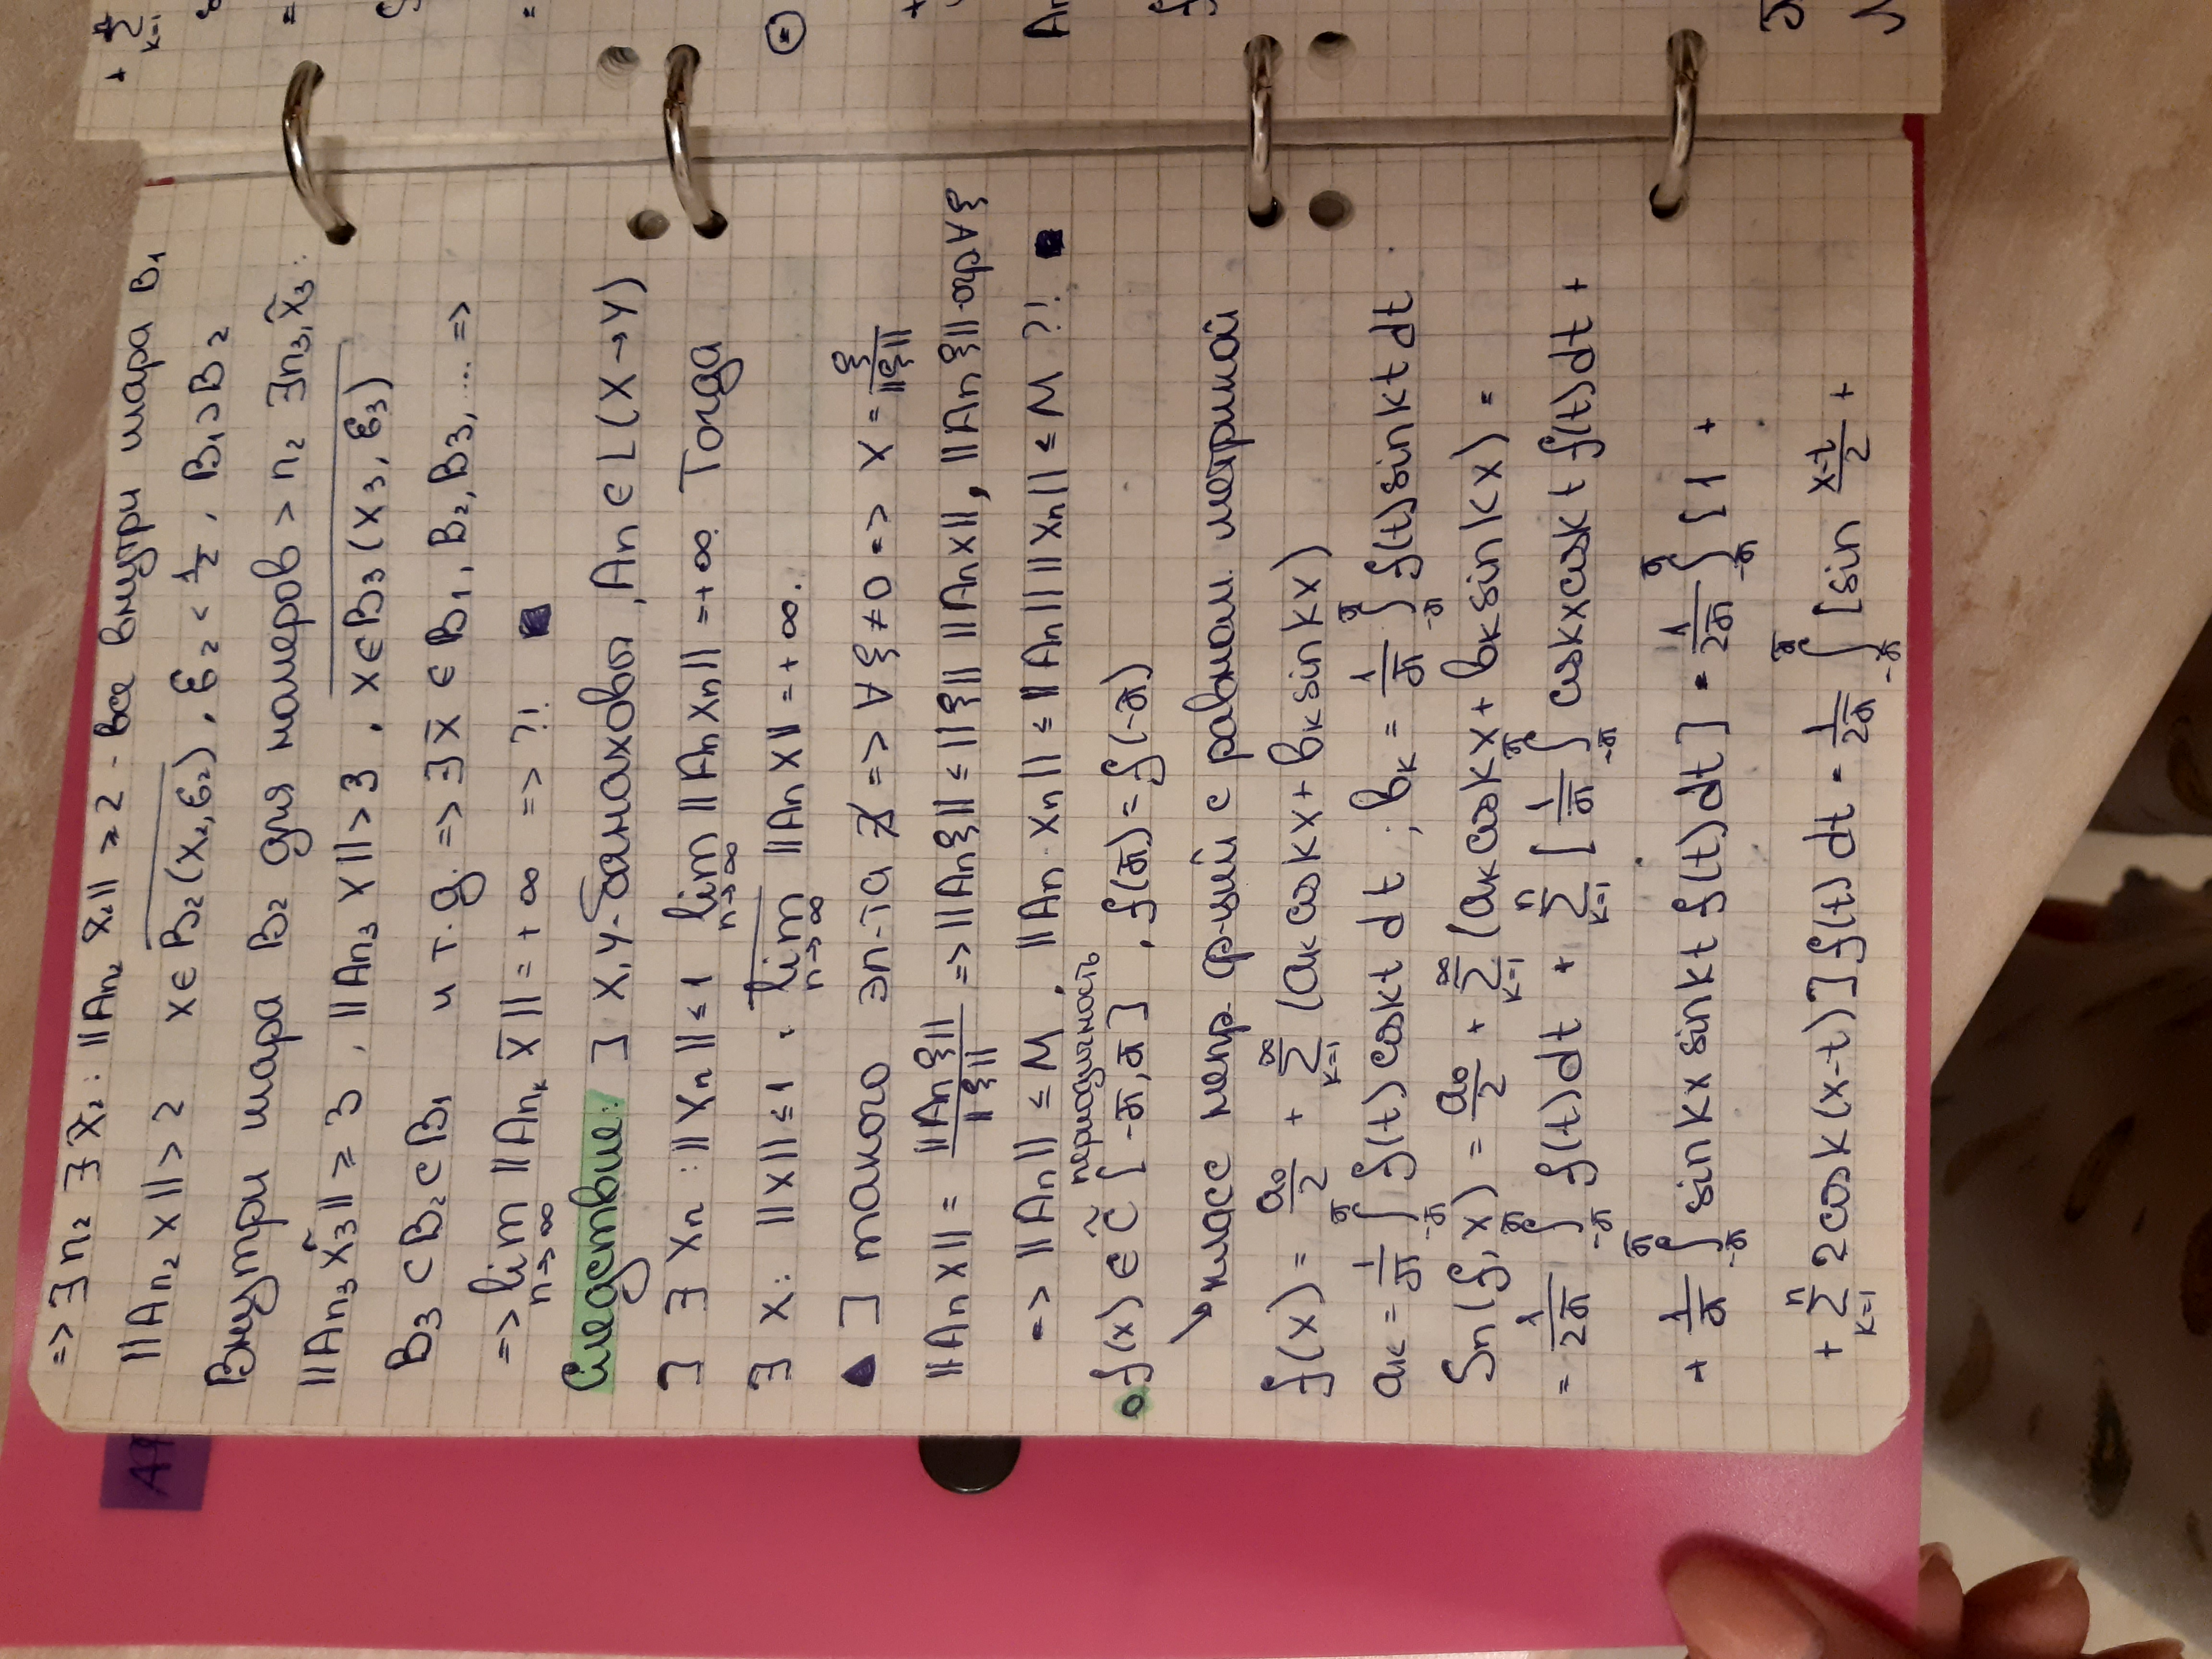 => ∃ n₂ ∃ x̃₂: ||Aₙ₂ x̃₂|| ≥ 2 - все внутри шара B₁
||Aₙ₂ x|| > 2 x ∈ B̅₂(x₂, ε₂), ε₂ < 1/2, B₁ ⊃ B₂
Внутри шара B₂ для номеров > n₂ ∃n₃, x̃₃:
||Aₙ₃ x̃₃|| ≥ 3, ||Aₙ₃ x|| > 3, x ∈ B̅₃(x₃, ε₃)
B₃ ⊂ B₂ ⊂ B₁ и т.д. => ∃ x̄ ∈ B₁, B₂, B₃, .... =>
=> lim n→∞ ||Aₙₖ x̄|| = +∞ => ?! ■
Следствие: ] X, Y - банаховы, Aₙ ∈ L(X→Y)
] ∃ xₙ: ||xₙ|| ≤ 1 lim n→∞ ||Aₙ xₙ|| = +∞. Тогда
∃ x: ||x|| ≤ 1, l̅i̅m̅ n→∞ ||Aₙ x|| = +∞.
▲ ] такого эл-та ∄ => ∀ ξ ≠ 0 => x = ξ/||ξ||
||Aₙ x|| = ||Aₙ ξ||/||ξ|| => ||Aₙ ξ|| ≤ ||ξ|| ||Aₙ x||, ||Aₙ ξ|| - огр ∀ ξ
=> ||Aₙ|| ≤ M, ||Aₙ xₙ|| ≤ ||Aₙ|| ||xₙ|| ≤ M ?! ■
периодичность
o f(x) ∈ C̃ [-π, π], f(π) = f(-π)
↘ класс непр. ф-ций с равном. метрикой
f(x) = a₀/2 + ∑ k=1 ∞ (aₖ cos kx + bₖ sin kx)
aₖ = 1/π ∫ -π π f(t) cos kt dt; bₖ = 1/π ∫ -π π f(t) sin kt dt
Sₙ(f, x) = a₀/2 + ∑ k=1 ∞ (aₖ cos kx + bₖ sin kx) =
= 1/2π ∫ -π π f(t) dt + ∑ k=1 n [1/π ∫ -π π cos kx cos kt f(t) dt +
+ 1/π ∫ -π π sin kx sin kt f(t) dt] = 1/2π ∫ -π π [1 +
+ ∑ k=1 n 2 cos k(x-t)] f(t) dt = 1/2π ∫ -π π [sin x-t/2 +